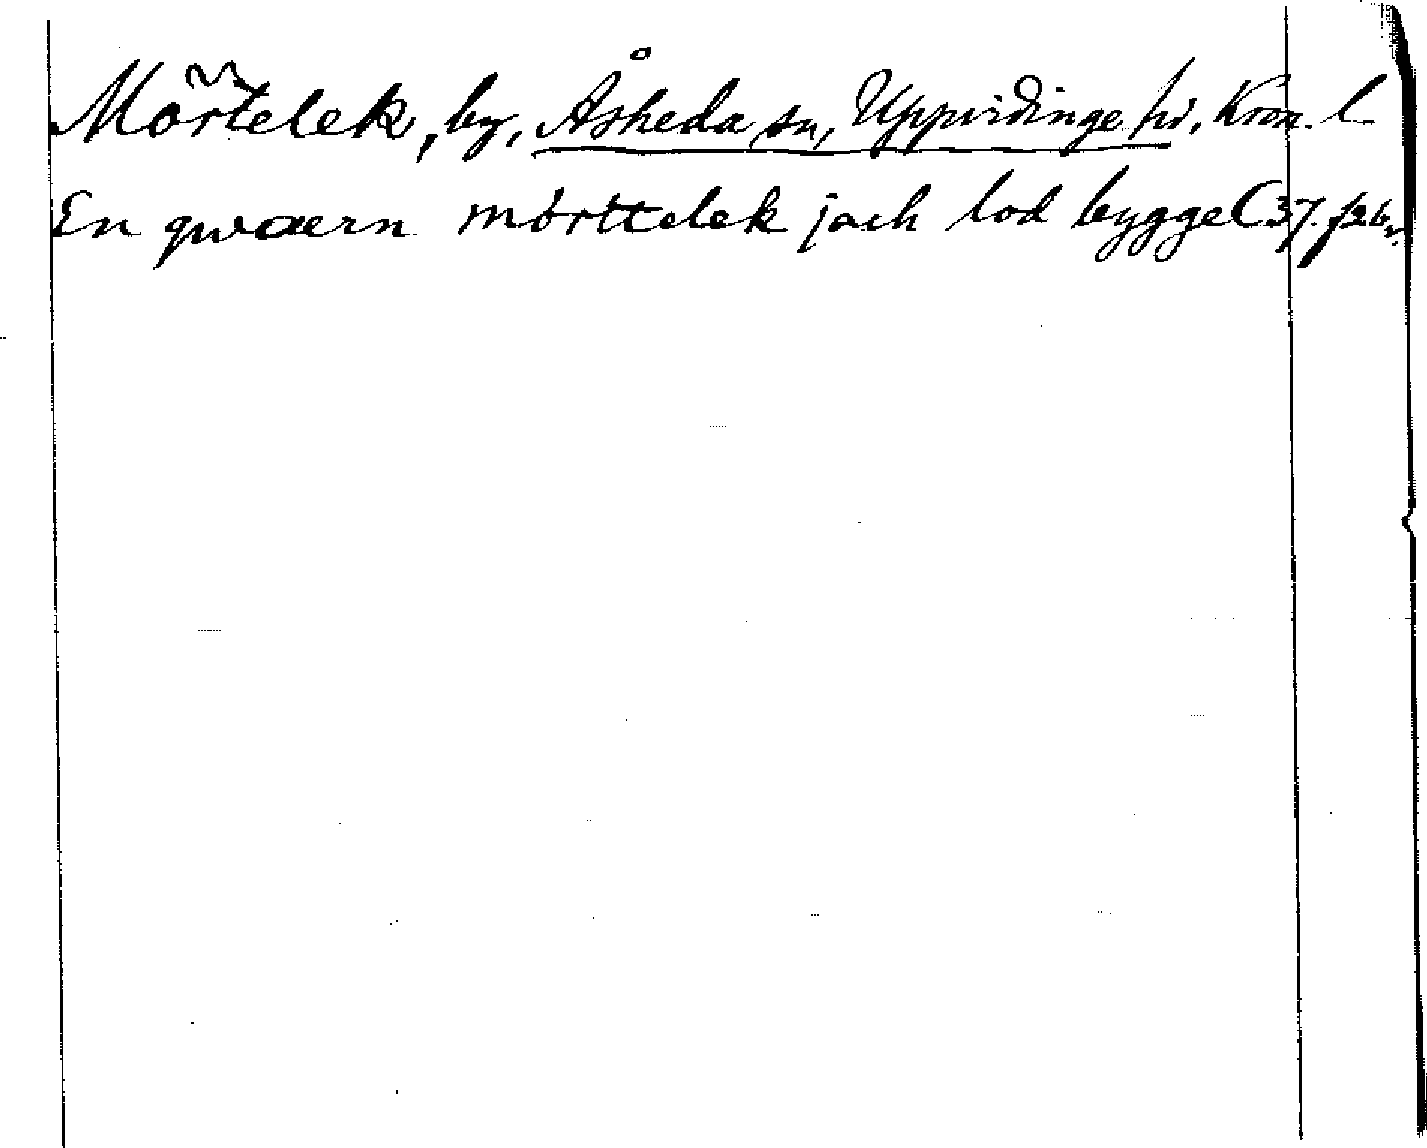 Mörtelek, by, Åsheda sn, Uppvidinge hd, Kron. l
En qwaern mörttelek jach lod bygge C 37. f 26 r.